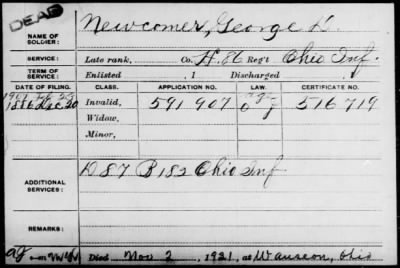 DEAD
NAME OF SOLDIER: Newcomer, George
SERVICE: Late rank, Co. H. 86 Reg't Ohio Inf.
TERM OF SERVICE: Enlisted , 1 Discharged , 1
DATE OF FILING. CLASS. APPLICATION NO. LAW. CERTIFICATE NO.
1886 Dec 20 Invalid, 591 907 516 719
Widow,
Minor,
ADDITIONAL SERVICES: D 87 B 182 Ohio Inf
REMARKS:
Died Nov 2, 1921, at Wauseon, Ohio